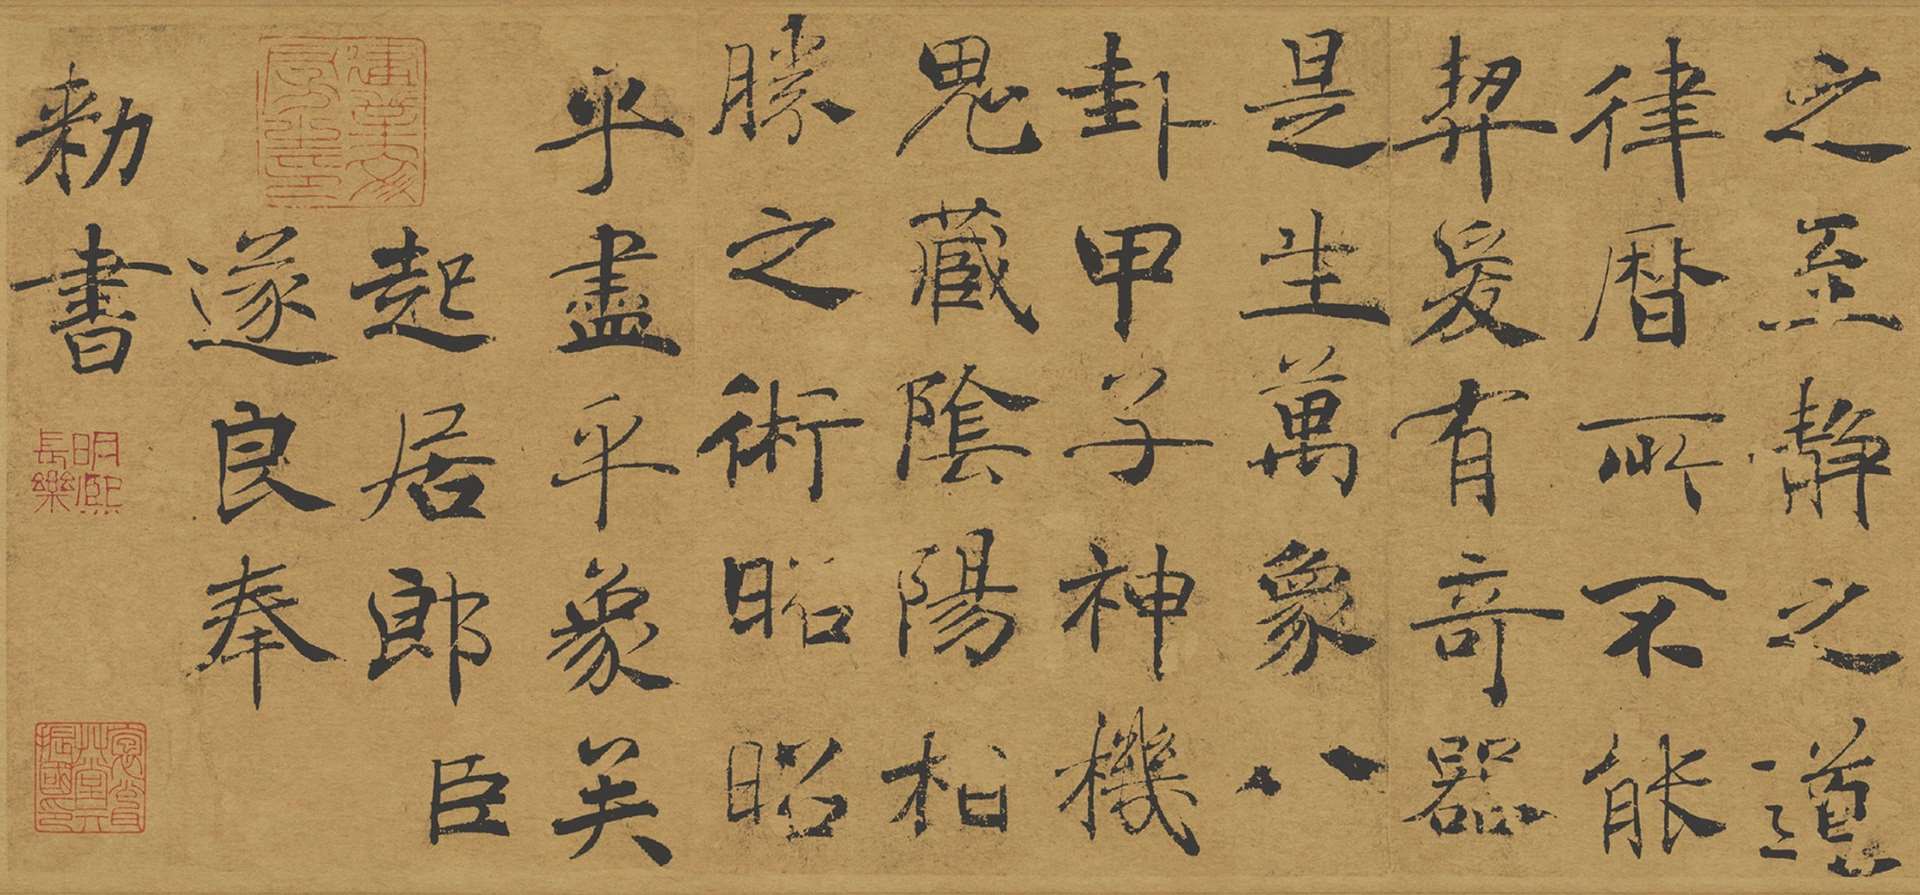 之至静之道
律曆所不能
契爰有奇器
是生萬象八
卦甲子神機
鬼藏陰陽相
勝之術昭昭
乎盡乎象矣
起居郎臣
遂良奉
勑書
明熙
長樂